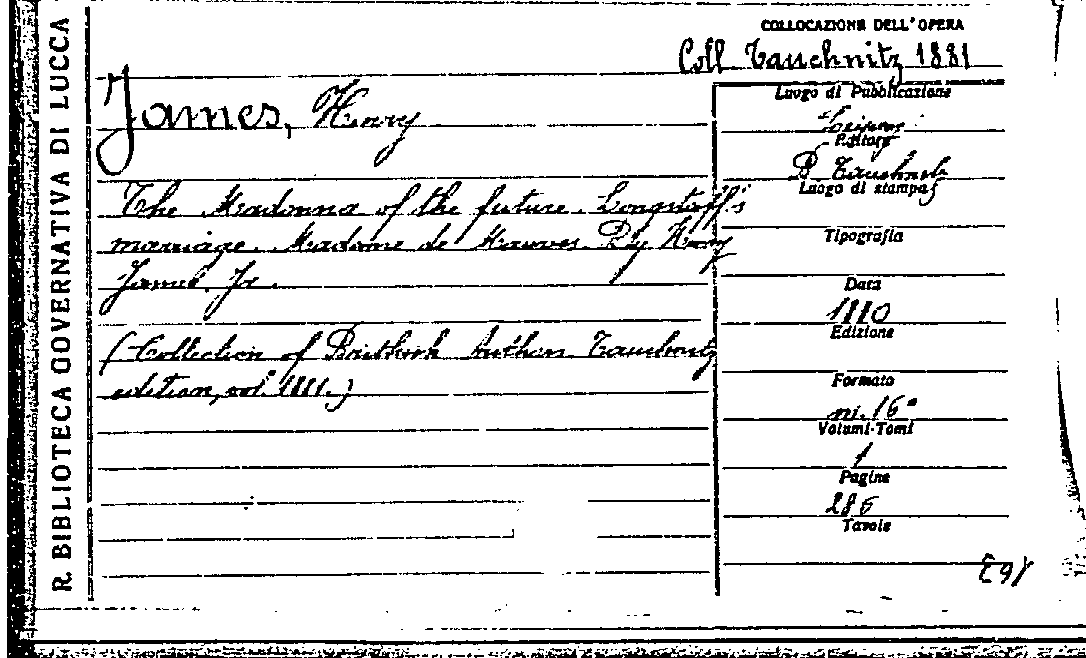 R. BIBLIOTECA GOVERNATIVA DI LUCCA
COLLOCAZIONE DELL'OPERA
Coll. Tauchnitz 1881
James, Henry
The Madonna of the future. Longstaff's
marriage. Madame de Mauves. By Henry
James. Jr.
(Collection of British Authors Tauchnitz
edition, vol. 1881.)
Luogo di Pubblicazione
Editore
B. Tauchnitz
Luogo di stampa
Tipografia
Data
1880
Edizione
Formato
in. 16°
Volumi-Tomi
1
Pagine
286
Tavole